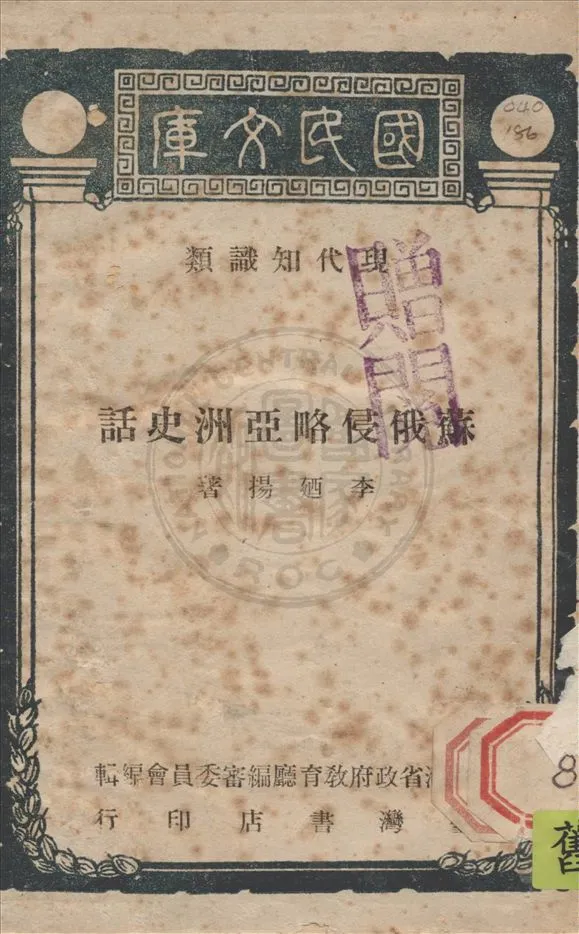 國民文庫
040
186
現代知識類
贈閱
蘇俄侵略亞洲史話
李廼揚著
灣省政府教育廳編審委員會編輯
灣書店印行
8
舊